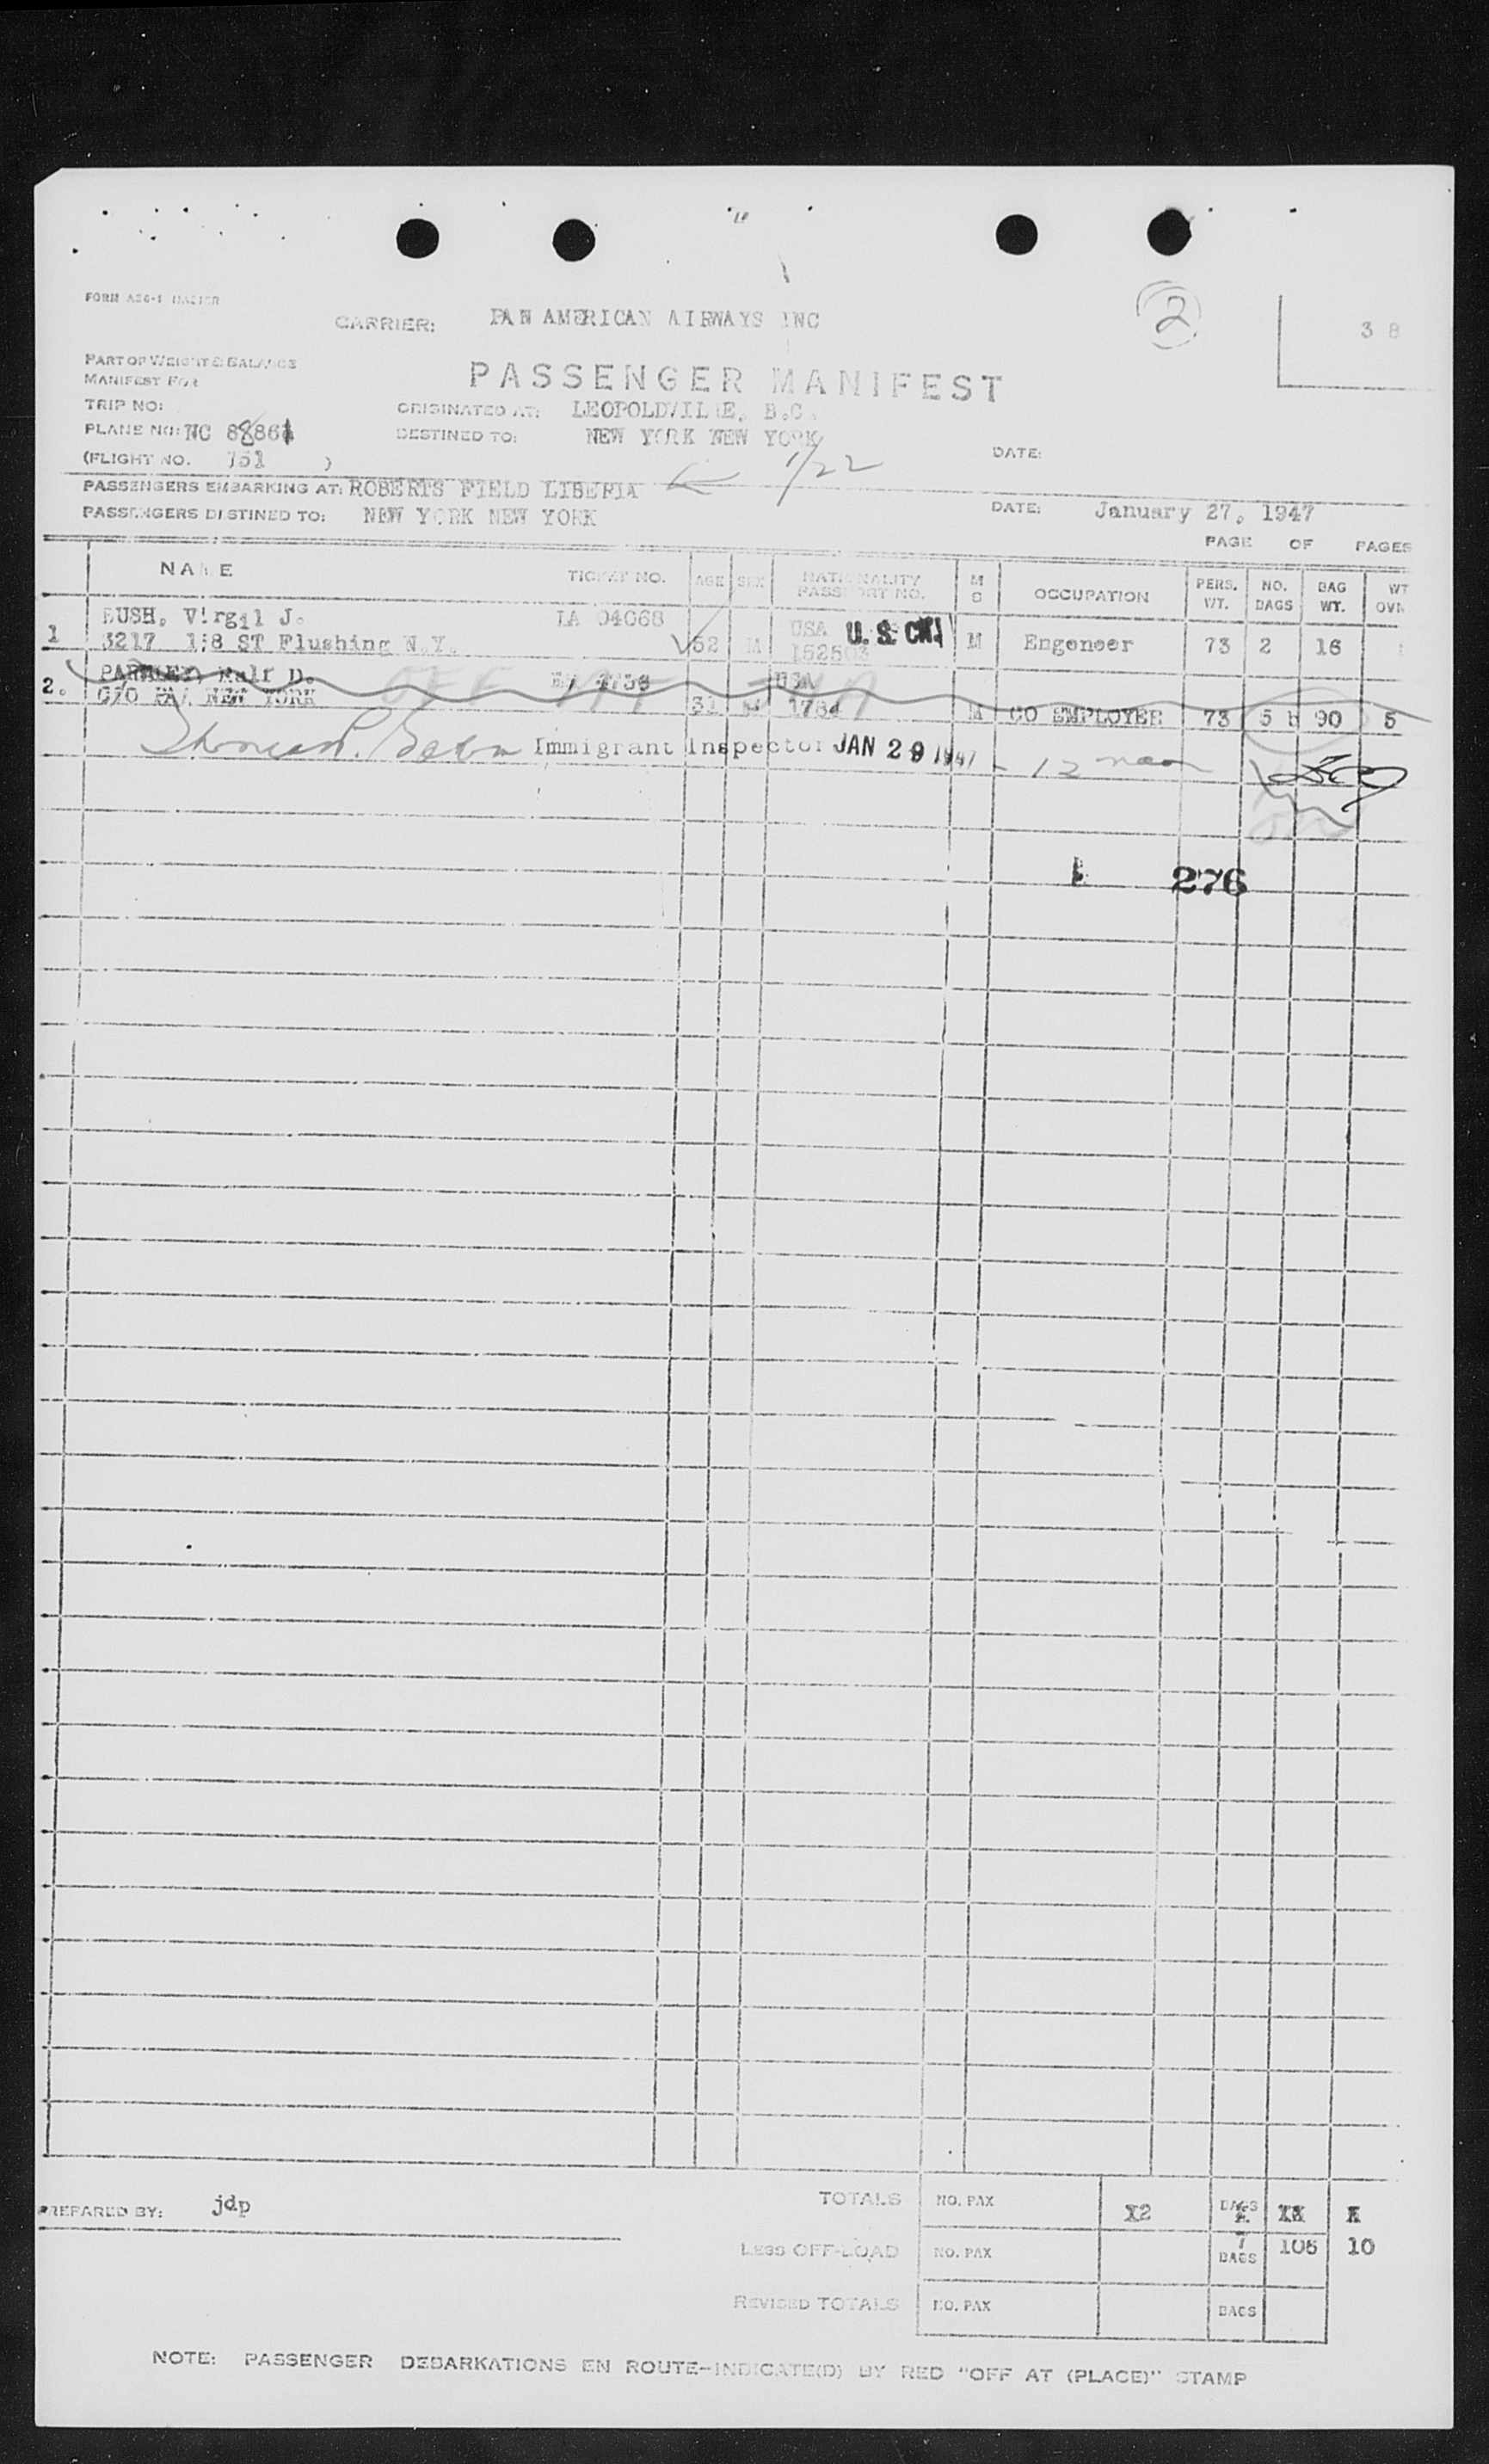 2
3 8
CARRIER: PAN AMERICAN AIRWAYS INC
PART OF WEIGHT & BALANCE
MANIFEST FOR
PASSENGER MANIFEST
TRIP NO:
ORIGINATED AT: LEOPOLDVILLE, B.C.
PLANE NO: NC 88861
DESTINED TO: NEW YORK NEW YORK
(FLIGHT NO. 151 )
DATE:
1/22
PASSENGERS EMBARKING AT: ROBERTS FIELD LIBERIA
PASSENGERS DISTINED TO: NEW YORK NEW YORK
DATE: January 27, 1947
PAGE OF PAGES
NAME TICKET NO. AGE SEX NATIONALITY PASSPORT NO. M S OCCUPATION PERS. WT. NO. BAGS BAG WT. WT
BUSH, Virgil J. LA 04068 USA U.S.
1 3217 ST Flushing N.Y. 52 M 152503 M Engeneer 73 2 16
2. Ralf D. USA
C/O NEW YORK 31 M M CO EMPLOYER 73 5 90 5
Immigrant Inspector JAN 29 1947 - 12 noon
276
PREPARED BY: jdp
TOTALS NO. PAX 2 BAGS
7 106 10
LESS OFF-LOAD NO. PAX BAGS
REVISED TOTALS NO. PAX BAGS
NOTE: PASSENGER DEBARKATIONS EN ROUTE-INDICATE(D) BY RED "OFF AT (PLACE)" STAMP